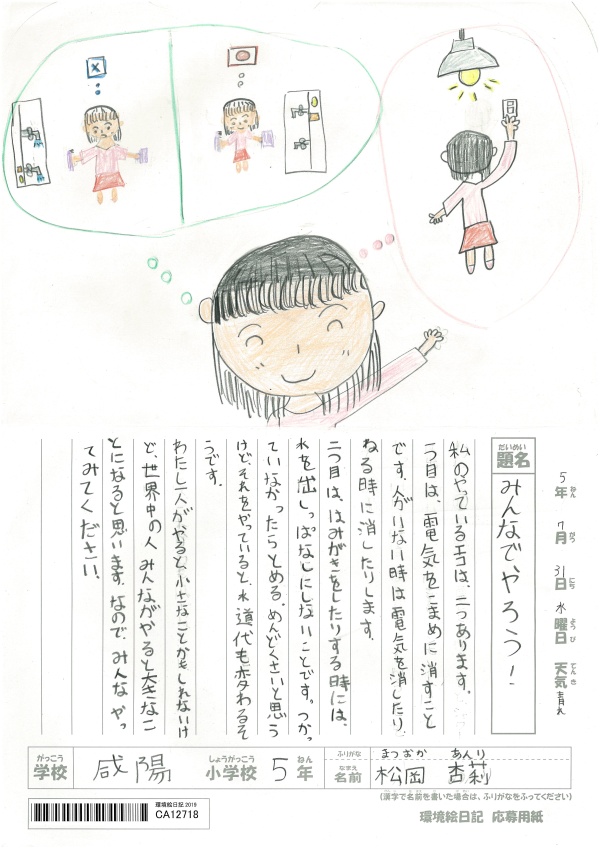 5年 7月 31日 水曜日 天気 晴れ
ねん がつ にち ようび てんき
だいめい
題名
みんなで、やろう!
私のやっているエコは、二つあります。
一つ目は、電気をこまめに消すこと
です。人がいない時は電気を消したり
ねる時に消したりします。
二つ目は、はみがきをしたりする時には、
水を出しっぱなしにしないことです。つかっ
ていなかったらとめる。めんどくさいと思う
けど、それをやっていると、水道代も変わるそ
うです。
わたし一人が、やると、小さなことかもしれないけ
ど、世界中の人みんながやると大きなこ
とになると思います。なので、みんなやっ
てみてください。
がっこう しょうがっこう ねん
学校 咸陽 小学校 5年
ふりがな まつおか あんり
なまえ
名前 松岡 杏莉
(漢字で名前を書いた場合は、ふりがなをふってください)
環境絵日記2019
CA12718
環境絵日記 応募用紙